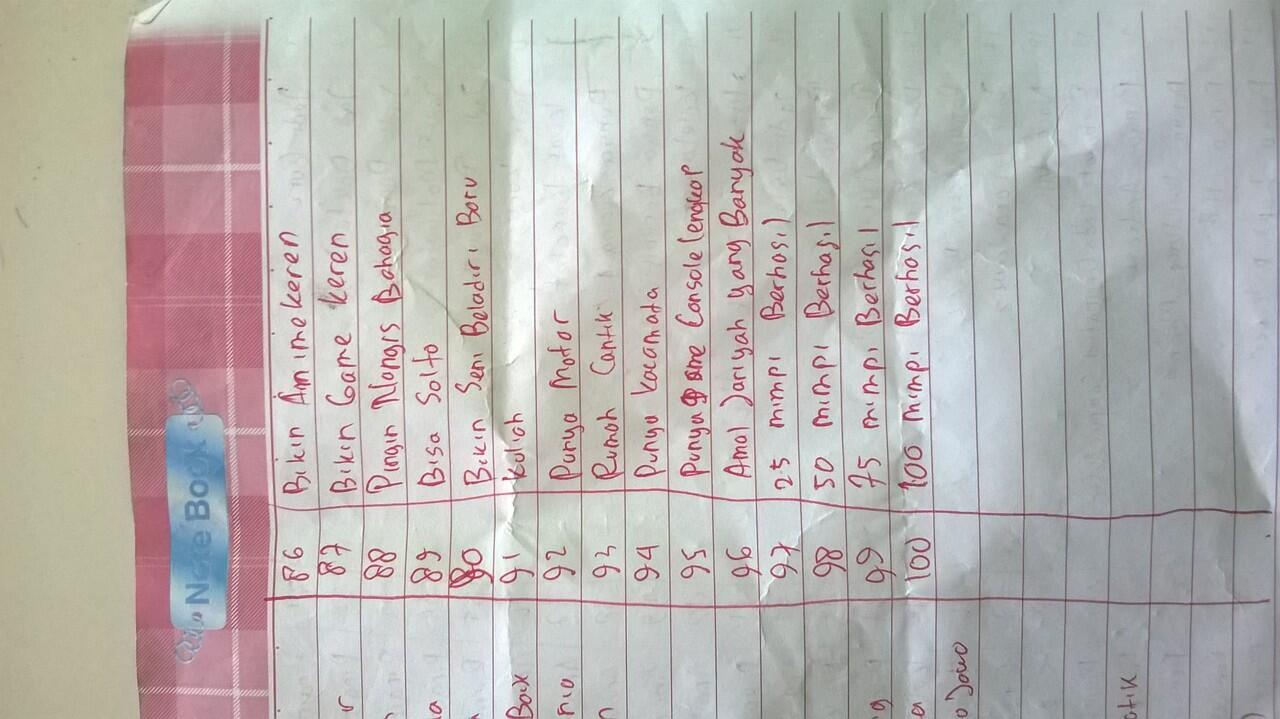 Note Book
86 Bikin Anime keren
87 Bikin Game keren
88 Pingin Nangis Bahagia
89 Bisa Salto
90 Bikin Seni Beladiri Baru
91 Kuliah
92 Punya Motor
93 Rumah Cantik
94 Punya Kacamata
95 Punya Game Console lengkap
96 Amal Jariyah yang Banyak
97 25 mimpi Berhasil
98 50 mimpi Berhasil
99 75 mimpi Berhasil
100 100 mimpi Berhasil
Baik